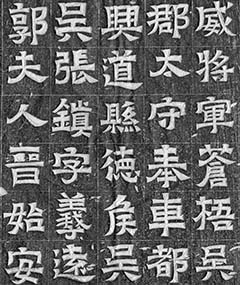 威將軍蒼梧吳
郡太守奉車都
興道縣徳侯吳
吳張鎮字羲遠
郭夫人晉始安